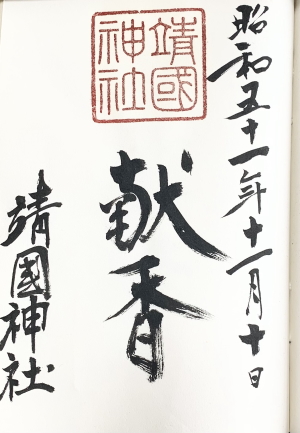 昭和五十一年十一月十日
靖國
神社
献香
靖國神社